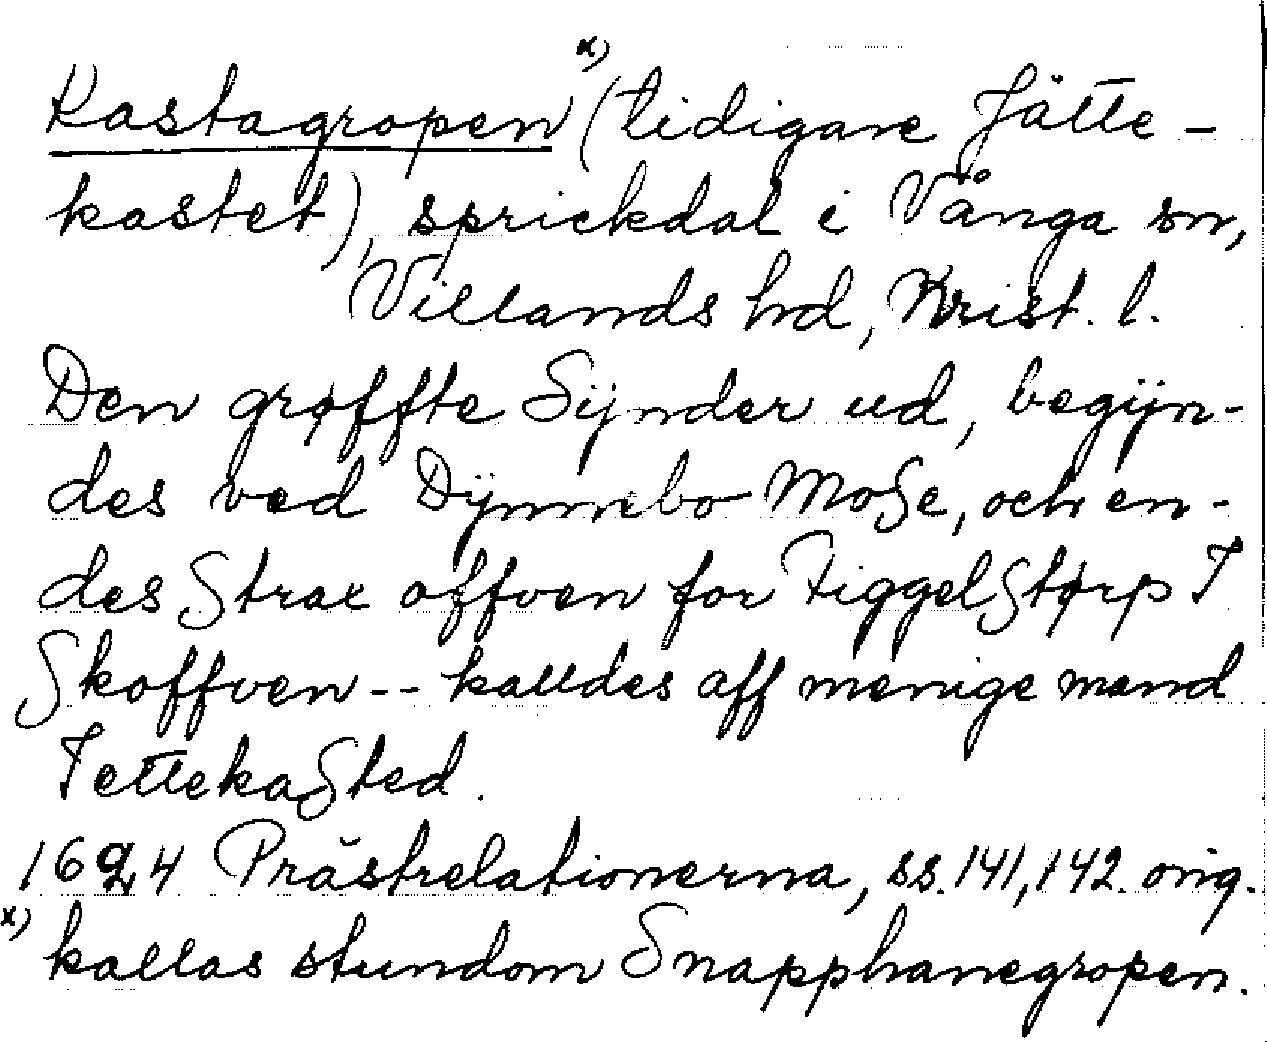 Kastagropen x) (tidigare Jätte-
kastet), sprickdal i Vånga sn,
Villands hd, Krist. l.
Den grøffte Sÿnder ud, begÿn-
des ved Dÿnnebo Mose, och en-
des Strax offven for Tiggelstørp I
Skoffven -- kalldes aff menige mand
Iettekasted.
1624 Prästrelationerna, ss. 141, 142 orig.
x) kallas stundom Snapphanegropen.